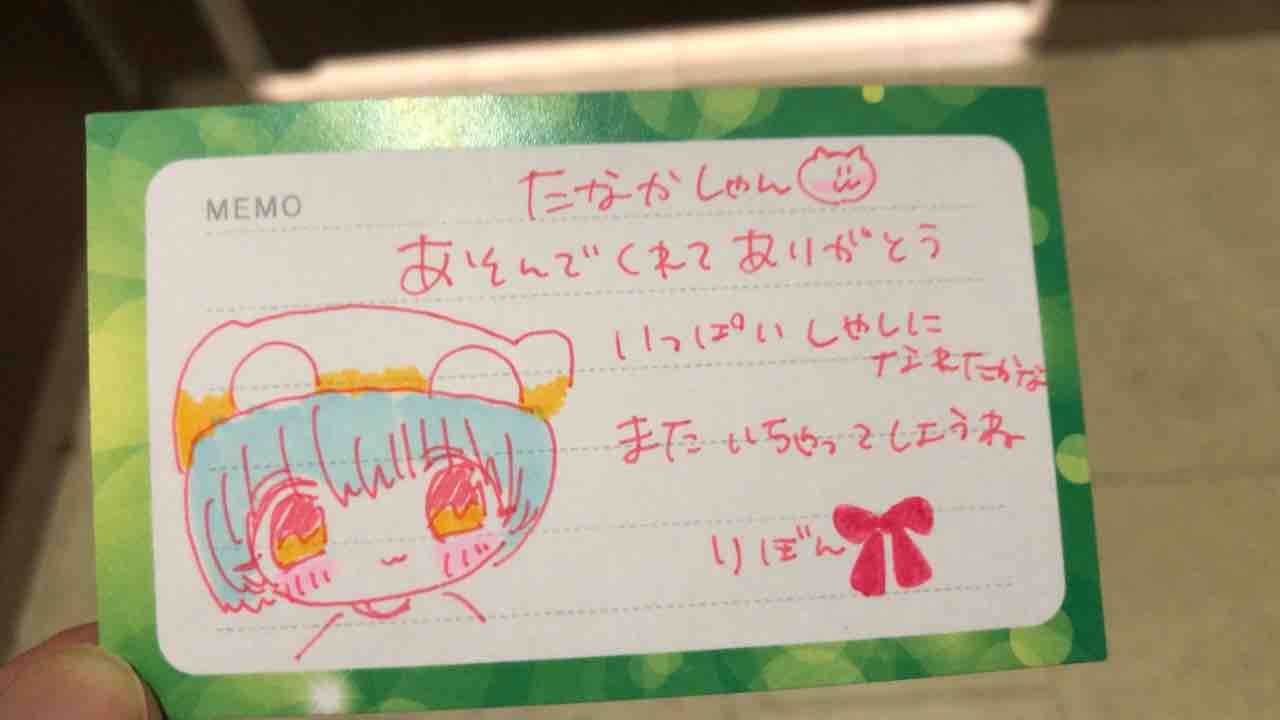 MEMO
たなかしゃん
あそんでくれてありがとう
いっぱいしゃしに
なれたかな
まったいちゃってしようね
りぼん